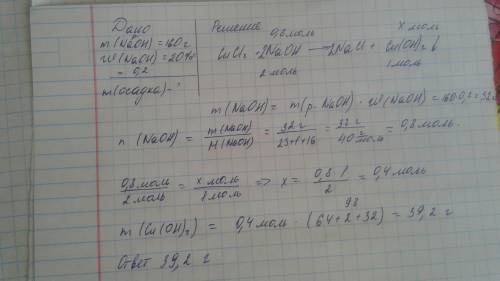 Дано
m(NaOH) = 160 г
W(NaOH) = 20%
= 0,2
m(осадка) - ?
Решение
0,8 моль х моль
CuCl₂ + 2NaOH → 2NaCl + Cu(OH)₂ ↓
2 моль 1 моль
m(NaOH) = m(р. NaOH) · W(NaOH) = 160 · 0,2 = 32 г
n(NaOH) = m(NaOH)/M(NaOH) = 32 г/23+1+16 = 32 г/40 г/моль = 0,8 моль.
0,8 моль/2 моль = х моль/1 моль => x = 0,8 · 1/2 = 0,4 моль
98
m(Cu(OH)₂) = 0,4 моль · (64+2+32) = 39,2 г
Ответ 39,2 г